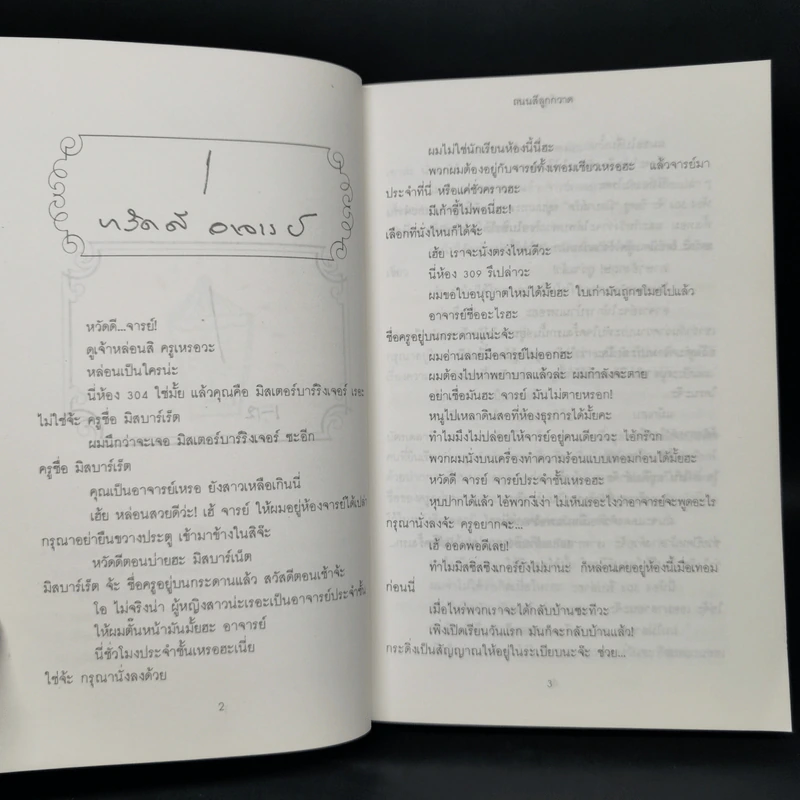 1
หวัดดี อาจารย์
หวัดดี...จารย์!
ดูเจ้าหล่อนสิ ครูเหรอวะ
หล่อนเป็นใครน่ะ
นี่ห้อง 304 ใช่มั้ย แล้วคุณคือ มิสเตอร์บาร์ริงเจอร์ เรอะ
ไม่ใช่จ้ะ ครูชื่อ มิสบาร์เร็ต
ผมนึกว่าจะเจอ มิสเตอร์บาร์ริงเจอร์ ซะอีก
ครูชื่อ มิสบาร์เร็ต
คุณเป็นอาจารย์เหรอ ยังสาวเหลือเกินนี่
เฮ้ย หล่อนสวยดีว่ะ! เฮ้ จารย์ ให้ผมอยู่ห้องจารย์ได้เปล่า
กรุณาอย่ายืนขวางประตู เข้ามาข้างในสิจ๊ะ
หวัดดีตอนบ่ายฮะ มิสบาร์เน็ต
มิสบาร์เร็ต จ้ะ ชื่อครูอยู่บนกระดานแล้ว สวัสดีตอนเช้าจ้ะ
โอ ไม่จริงน่า ผู้หญิงสาวน่ะเรอะเป็นอาจารย์ประจำชั้น
ให้ผมตั๊นหน้ามันมั้ยฮะ อาจารย์
นี่ชั่วโมงประจำชั้นเหรอฮะเนี่ย
ใช่จ้ะ กรุณานั่งลงด้วย
2
ถนนสีลูกกวาด
ผมไม่ใช่นักเรียนห้องนี้นี่ฮะ
พวกผมต้องอยู่กับจารย์ทั้งเทอมเชียวเหรอฮะ แล้วจารย์มา
ประจำที่นี่ หรือแค่ชั่วคราวฮะ
มีเก้าอี้ไม่พอนี่ฮะ!
เลือกที่นั่งไหนก็ได้จ้ะ
เฮ้ย เราจะนั่งตรงไหนดีวะ
นี่ห้อง 309 รึเปล่าวะ
ผมขอใบอนุญาตใหม่ได้มั้ยฮะ ใบเก่ามันถูกขโมยไปแล้ว
อาจารย์ชื่ออะไรฮะ
ชื่อครูอยู่บนกระดานแน่ะจ้ะ
ผมอ่านลายมือจารย์ไม่ออกฮะ
ผมต้องไปหาพยาบาลแล้วล่ะ ผมกำลังจะตาย
อย่าเชื่อมันฮะ จารย์ มันไม่ตายหรอก!
หนูไปเหลาดินสอที่ห้องธุรการได้มั้ยคะ
ทำไมมึงไม่ปล่อยให้จารย์อยู่คนเดียววะ ไอ้กร๊วก
พวกผมนั่งบนเครื่องทำความร้อนแบบเทอมก่อนได้มั้ยฮะ
หวัดดี จารย์ จารย์ประจำชั้นเหรอฮะ
หุบปากได้แล้ว ไอ้พวกงี่เง่า ไม่เห็นเรอะไงว่าอาจารย์จะพูดอะไร
กรุณานั่งลงจ้ะ ครูอยากจะ...
เฮ้ ออดพอดีเลย!
ทำไมมิสซิสซิงเกอร์ยังไม่มานะ ก็หล่อนเคยอยู่ห้องนี้เมื่อเทอม
ก่อนนี่
เมื่อไหร่พวกเราจะได้กลับบ้านซะทีวะ
เพิ่งเปิดเรียนวันแรก มันก็จะกลับบ้านแล้ว!
กระดิ่งเป็นสัญญาณให้อยู่ในระเบียบนะจ๊ะ ช่วย...
3